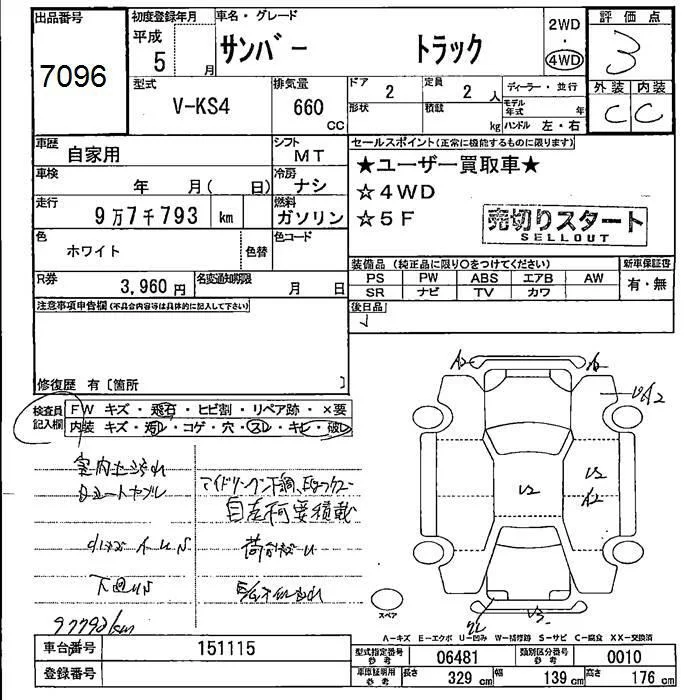 出品番号 初度登録年月 車名・グレード 2WD 評価点
7096 平成 5 月 サンバー トラック ・ 4WD 3
型式 排気量 ドア 定員 ディーラー・並行 外装 内装
V-KS4 660 CC 2 2 人 モデル年式 年 C C
形状 積載 kg ハンドル 左・右
車歴 自家用 シフト MT セールスポイント(正常に機能するものに限ります)
車検 年 月( 日) 冷房 ナシ ★ユーザー買取車★
走行 9万7千793 km 燃料 ガソリン ☆4WD
色 ホワイト 色替 色コード ☆5F 売切りスタート
SELLOUT
R券 3,960円 名変通知期限 月 日 装備品(純正品に限り○をつけてください) 新車保証書
PS PW ABS エアB AW 有・無
SR ナビ TV カワ
注意事項申告欄(不具合内容等は具体的に記入して下さい) 後日品
修復歴 有〔箇所 〕
検査員記入欄 FW キズ・飛石・ヒビ割・リペア跡・×要
内装 キズ・汚レ・コゲ・穴・スレ・キレ・破レ
A2
U2 A2
U2
U2
A2
自走不可要積載
下回りS
97793km
スペア
V3
A-キズ E-エクボ U-凹み W-補修跡 S-サビ C-腐食 XX-交換済
車台番号 151115 型式指定番号 参考 06481 類別区分番号 参考 0010
登録番号 車庫証明用 参考 長さ 329 cm 幅 139 cm 高さ 176 cm